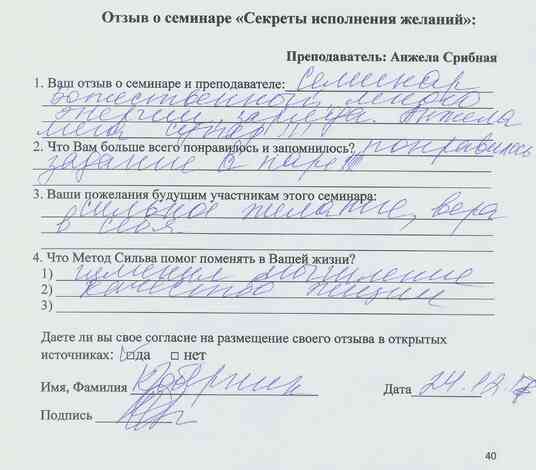 Отзыв о семинаре «Секреты исполнения желаний»:
Преподаватель: Анжела Срибная
1. Ваш отзыв о семинаре и преподавателе: Семинар
божественной, много
энергии, заряда. Анжела
мега супер!!!
2. Что Вам больше всего понравилось и запомнилось? понравилось
задание в паре!!!
3. Ваши пожелания будущим участникам этого семинара:
сильное желание, вера
в себя
4. Что Метод Сильва помог поменять в Вашей жизни?
1) изменил мышление
2) качество жизни
3)
Даете ли вы свое согласие на размещение своего отзыва в открытых
источниках: □да □ нет
Имя, Фамилия
Дата 24.12.
Подпись
40